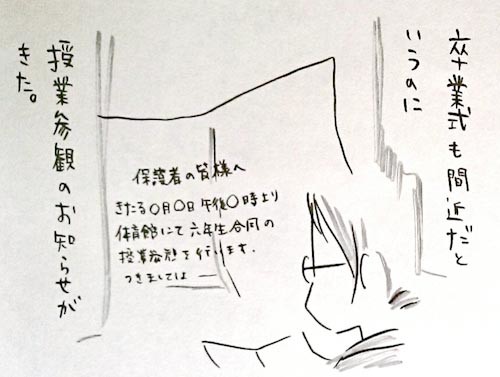 卒業式も間近だと
いうのに
授業参観のお知らせが
きた。
保護者の皆様へ
きたる〇月〇日午後〇時より
体育館にて六年生合同の
授業参観を行います.
つきましては